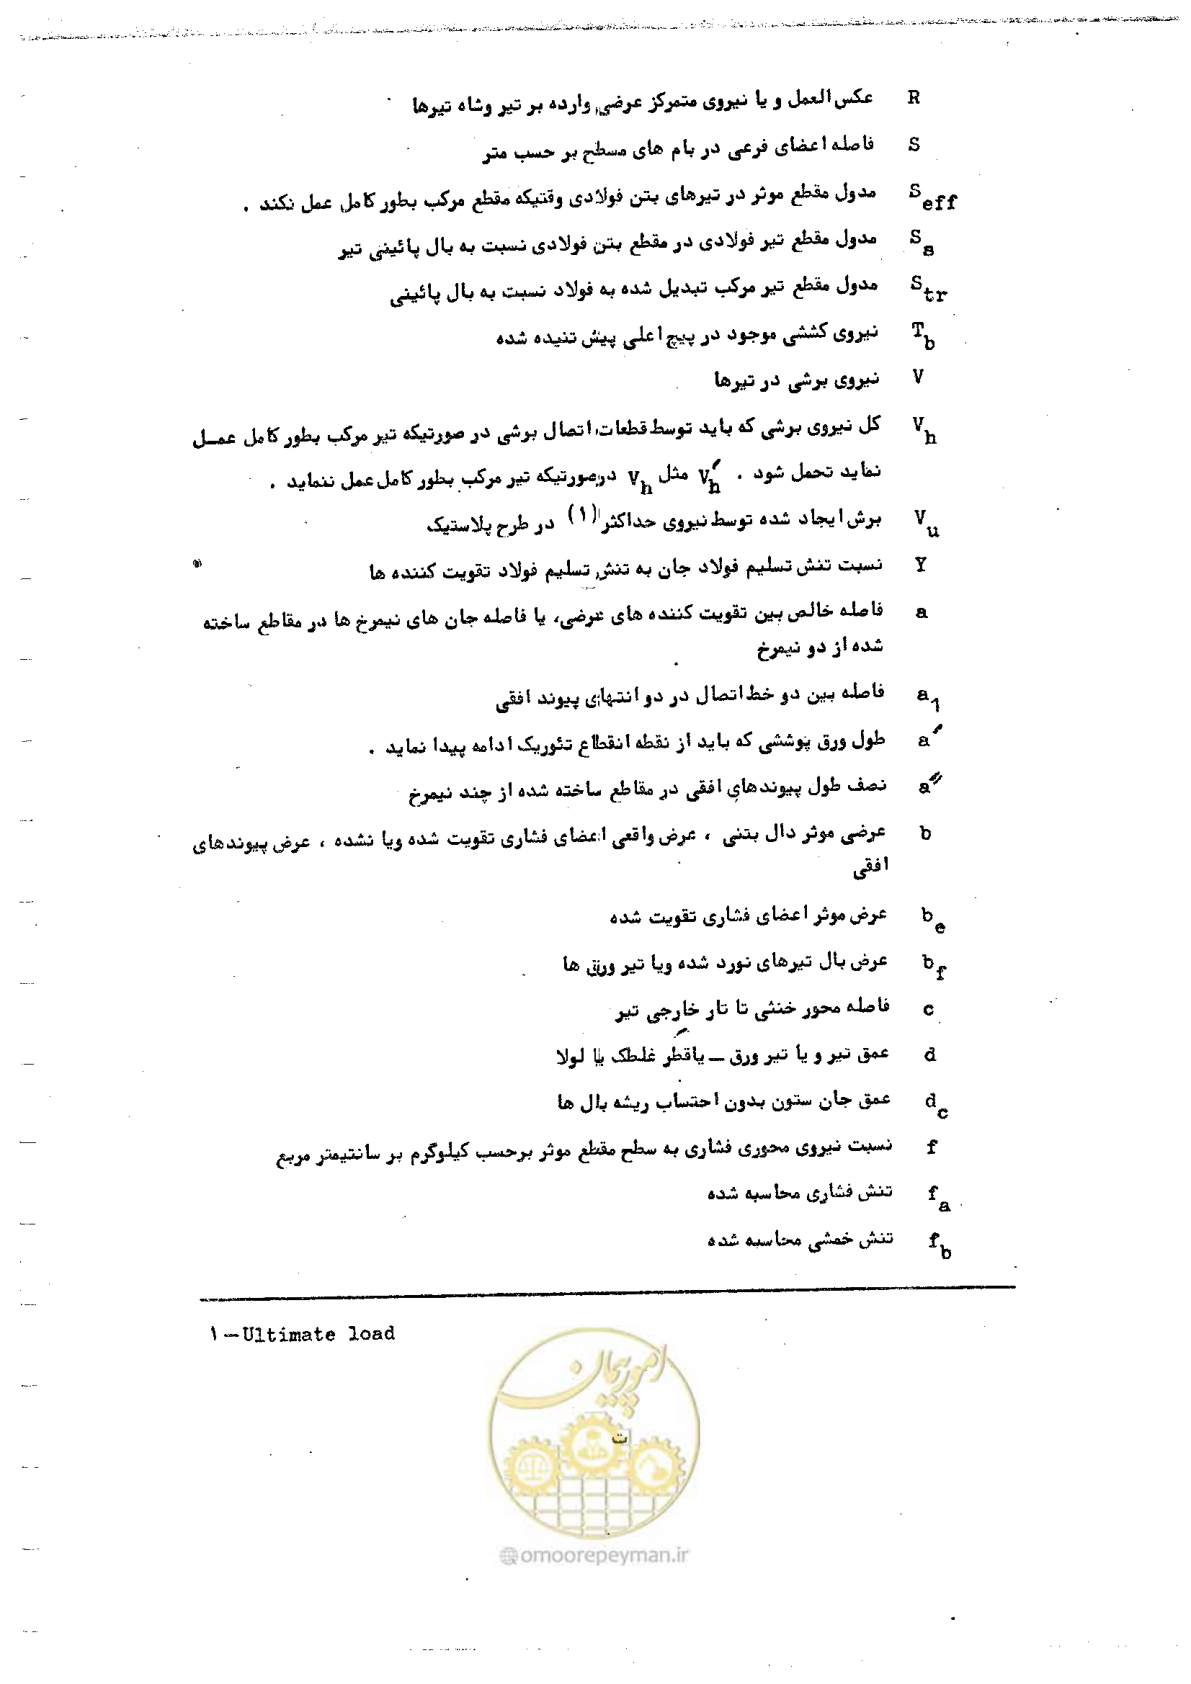 R عکس العمل و یا نیروی متمرکز عرضی وارده بر تیر وشاه تیرها
S فاصله اعضای فرعی در بام های مسطح بر حسب متر
S_eff مدول مقطع موثر در تیرهای بتن فولادی وقتیکه مقطع مرکب بطور کامل عمل نکند .
S_s مدول مقطع تیر فولادی در مقطع بتن فولادی نسبت به بال پائینی تیر
S_tr مدول مقطع تیر مرکب تبدیل شده به فولاد نسبت به بال پائینی
T_b نیروی کششی موجود در پیچ اعلی پیش تنیده شده
V نیروی برشی در تیرها
V_h کل نیروی برشی که باید توسط قطعات اتصال برشی در صورتیکه تیر مرکب بطور کامل عمـل
نماید تحمل شود . V′_h مثل V_h درصورتیکه تیر مرکب بطور کامل عمل ننماید .
V_u برش ایجاد شده توسط نیروی حداکثر (۱) در طرح پلاستیک
Y نسبت تنش تسلیم فولاد جان به تنش تسلیم فولاد تقویت کننده ها
a فاصله خالص بین تقویت کننده های عرضی، یا فاصله جان های نیمرخ ها در مقاطع ساخته
شده از دو نیمرخ
a_1 فاصله بین دو خط اتصال در دو انتهای پیوند افقی
a′ طول ورق پوششی که باید از نقطه انقطاع تئوریک ادامه پیدا نماید .
a″ نصف طول پیوندهای افقی در مقاطع ساخته شده از چند نیمرخ
b عرضی موثر دال بتنی ، عرض واقعی اعضای فشاری تقویت شده ویا نشده ، عرض پیوندهای
افقی
b_e عرض موثر اعضای فشاری تقویت شده
b_f عرض بال تیرهای نورد شده ویا تیر ورق ها
c فاصله محور خنثی تا تار خارجی تیر
d عمق تیر و یا تیر ورق ــ یاقطر غلطک یا لولا
d_c عمق جان ستون بدون احتساب ریشه بال ها
f نسبت نیروی محوری فشاری به سطح مقطع موثر برحسب کیلوگرم بر سانتیمتر مربع
f_a تنش فشاری محاسبه شده
f_b تنش خمشی محاسبه شده
۱–Ultimate load
امور پیمان
ت
@omoorepeyman.ir